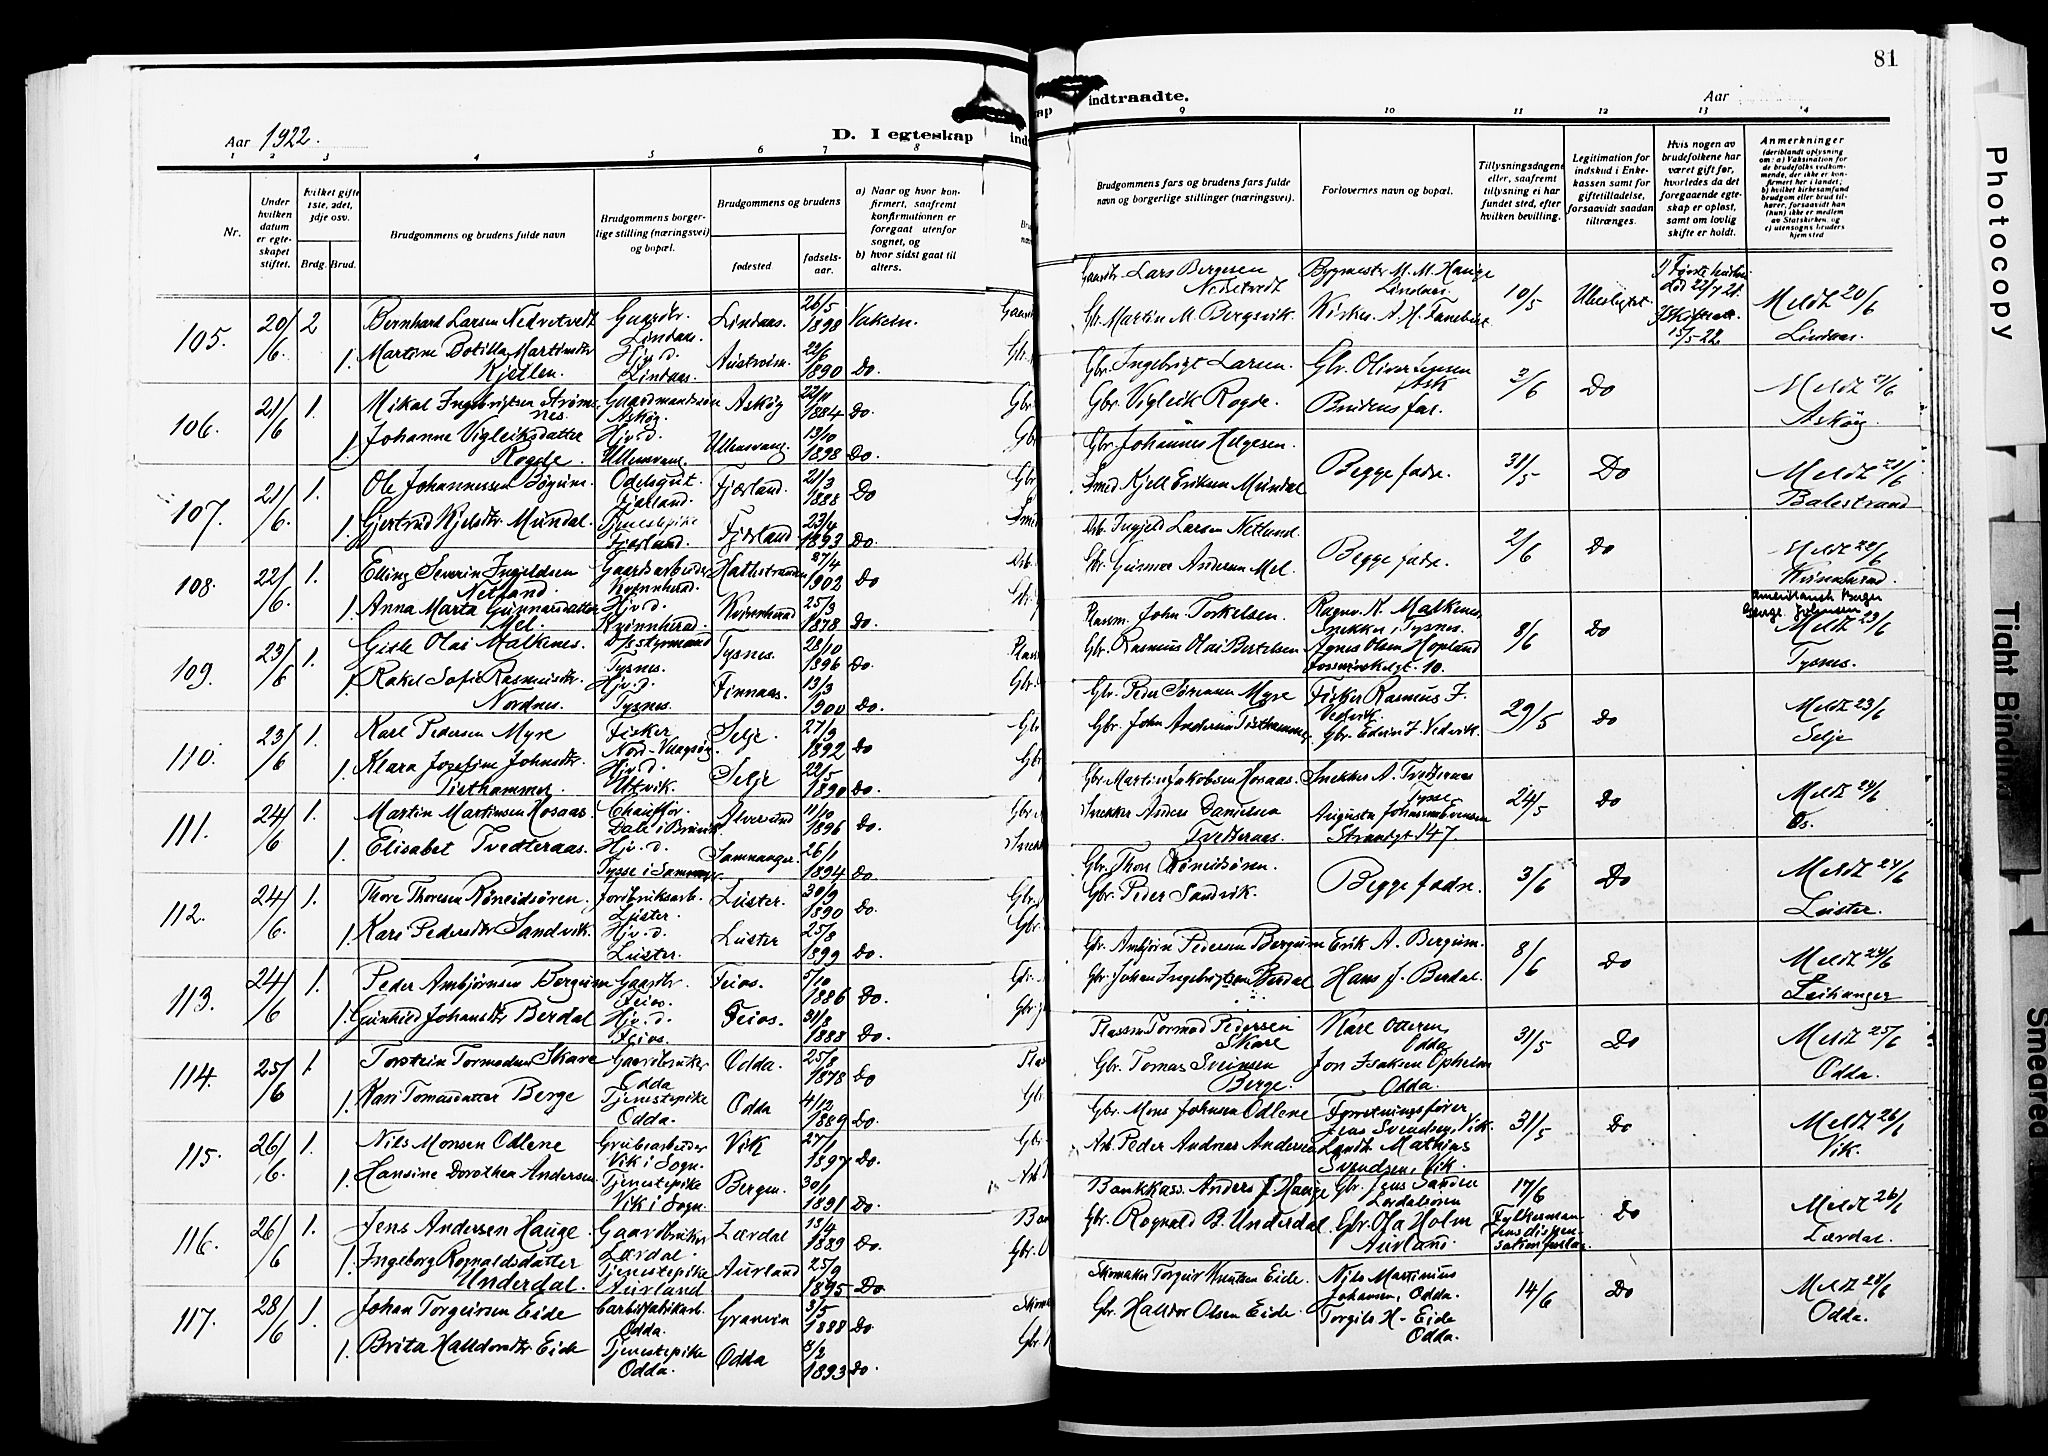 81
Aar 1922.
D. I egteskap
indtraadte.
Aar
1 2 3 4 5 6 7 8
9 10 11 12 13 14
Nr.
Under hvilken datum er egteskapet stiftet.
hvilket gifte 1ste, 2det, 3dje osv.
Brdg. Brud.
Brudgommens og brudens fulde navn
Brudgommens borgerlige stilling (næringsvei) og bopæl.
Brudgommens og brudens
fødested
fødselsaar.
a) Naar og hvor konfirmert, saafremt konfirmationen er foregaat utenfor sognet, og
b) hvor sidst gaat til alters.
Brudgommens fars og brudens fars fulde navn og borgerlige stillinger (næringsvei).
Forlovernes navn og bopæl.
Tillysningsdagene eller, saafremt tillysning ei har fundet sted, efter hvilken bevilling.
Legitimation for indskud i Enkekassen samt for giftetilladelse, forsaavidt saadan tiltrænges.
Hvis nogen av brudefolkene har været gift før, hvorledes da det foregaaende egteskap er opløst, samt om lovlig skifte er holdt.
Anmerkninger
(deriblandt oplysning om: a) Vaksination for de brudefolks vedkommende, der ikke er konfirmert her i landet; b) hvilket kirkesamfund brudgom eller brud tilhører, forsaavidt han (hun) ikke er medlem av Statskirken, og c) utensogns bruders hjemsted
105. 20/6. 2 Bernhard Larsen Nedretvedt Gaardbr. Lindaas. Lindaas. 26/5 1898 Vaksin.
1. Martine Botilla Martinsdtr Kjetlen. Hjv. d. Lindaas. Austrheim. 22/6 1890 Do.
Gaardbr. Lars Bergesen Nedretvedt Bygmester M. M. Hauge Lindaas. 10/5 Ubeslegtet. Meldt 20/6
Gbr. Martin M. Bergsvik. Lindaas.
106. 21/6 1. Mikal Ingebrigtsen Strømsnes. Gaardmandssøn Askøy. Askøy 22/11 1884 Do.
1. Johanne Vigleiksdatter Rogde. Hjv. d. Ullensvang. Ullensvang. 13/10 1898 Do.
Gbr. Ingebrigt Larsen. Gbr. Oliver Jensen Ask 2/6 Do Meldt 21/6
Gbr. Vigleik Rogde. Brudens far. Askøy.
107. 21/6. 1. Ole Johannessen Bøyum. Odelsgut. Fjærland. Fjærland. 21/3 1888 Do
1. Gjertrud Kjelsdtr. Mundal. Tjenestepike Fjærland. Fjærland 23/4 1893 Do.
Gbr. Johannes Helgesen. Begge fædre. 31/5 Do Meldt 21/6
Smed Kjell Eriksen Mundal Balestrand
108. 22/6. 1. Elling Severin Ingjeldsen Netland. Gaardsarbeider Kvinnherad. Hatlestranden 27/4 1902 Do
1. Anna Marta Gunnarsdatter Mel. Hjv. d. Kvinnherad. Kvinnherad 25/3 1878 Do.
Arb. Ingjeld Larsen Netland. Begge fædre. 2/6 Do Meldt 22/6
Gbr. Gunnar Andersen Mel. Kvinnherad.
109. 23/6 1. Gisle Olai Malkenes. Tysnes. Tysnes. 28/10 1896 Do.
1. Rakel Sofie Rasmusdtr. Nordnes. Hjv. d. Tysnes. Finnaas. 13/3 1900 Do.
Plassm. John Torkelsen. Ragnv. K. Malkenes, Snekker i Tysnes. 8/6 Do Amerikansk Borger Meldt 23/6
Gbr. Rasmus Olai Bertelsen Agnes Olsen Hopland Tysnes.
110. 23/6 1. Karl Pedersen Myre Fisker Nord-Vaagsøy. Selje. 27/3 1892 Do
1. Klara Josefine Johnsdtr. Tisthammer. Hjv. d. Utvik. Selje 22/5 1890 Do.
Gbr. Peder Sørensen Myre Fisker Rasmus J. Vedvik. 29/5 Do Meldt 23/6
Gbr. John Andersen Tisthammer. Gbr. Edvin J. Vedvik. Selje
111. 24/6 1. Martin Martinsen Hosaas. Chauffør. Dale i Bruvik Alversund 11/10 1896 Do.
1. Elisabet Tvedteraas. Hjv. d. Tysse i Samnanger Samnanger. 26/1 1894 Do.
Gbr. Martin Jakobsen Hosaas. Snekker A. Tvedteraas Tysse. 24/5 Do Meldt 24/6
Snekker Anders Danielsen Tvedteraas. Augusta Johannes Evensen Strandgt 147. Os.
112. 24/6. 1. Thore Thoresen Røneidsøren. Jordbruksarb. Luster. Luster. 30/9 1890 Do.
1. Kari Pedersdtr Sandvik. Hjv. d. Luster. Luster 25/8 1899 Do.
Gbr. Thore Røneidsøren. Begge fædre. 3/6 Do Meldt 24/6
Gbr. Peder Sandvik. Luster.
113. 24/6 1. Peder Ambjørnsen Bergum Gaardbr. Feios. Feios. 5/10 1886 Do.
1. Gunhild Johansdtr Berdal Hjv. d. Feios. Feios. 31/3 1888 Do.
Gbr. Ambjørn Pedersen Bergum Erik A. Bergum. 8/6 Do Meldt 24/6
Gbr. Johan Ingebrigtsen Berdal Hans J. Berdal. Leikanger
114. 25/6 1. Torstein Tormodsen Skare Gaardbruker Odda Odda. 25/8 1878 Do
1. Kari Tomasdatter Berge Tjenestepike Odda. Odda 4/12 1889 Do.
Plassm Tormod Pedersen Skare Odda 31/5 Do Meldt 25/6
Gbr. Tomas Sveinsen Berge. Jon Isaksen Opheim Odda. Odda.
115. 26/6. 1. Nils Monsen Odlene Grubearbeider Vik i Sogn. Vik 27/1 1897 Do.
1. Hansine Dorothea Andersen. Tjenestepike Vik i Sogn. Bergen. 30/1 1891 Do.
Gbr. Mons Johnsen Odlene Forretningsfører Jens Svendsen, Vik. 31/5 Do Meldt 26/6
Arb. Peder Andreas Andersen Mathias Svendsen, Vik. Vik.
116. 26/6 1. Jens Andersen Hauge. Gaardbruker Lærdal. Lærdal 13/4 1889 Do.
1. Ingeborg Rognaldsdatter Underdal. Tjenestepike Aurland Aurland 25/9 1895 Do
Bankkass. Anders J. Hauge Gbr. Jens Sanden Lærdalsøren 17/6 Do Meldt 26/6
Gbr. Rognald B. Underdal. Gbr. Ola Holm Aurland. Lærdal.
117. 28/6 1. Johan Torgeirsen Eide Carbidfabrikarb. Odda. Granvin 3/5 1888 Do
1. Brita Halldorsdtr Eide Tjenestepike Odda. Odda 8/2 1893 Do.
Skomaker Torgeir Knutsen Eide. Nils Martinius Johansen, Odda. 14/6 Do Meldt 28/6
Gbr. Halldor Olsen Eide. Torgils H. Eide Odda. Odda.
Photocopy
Tight Binding
Smeared